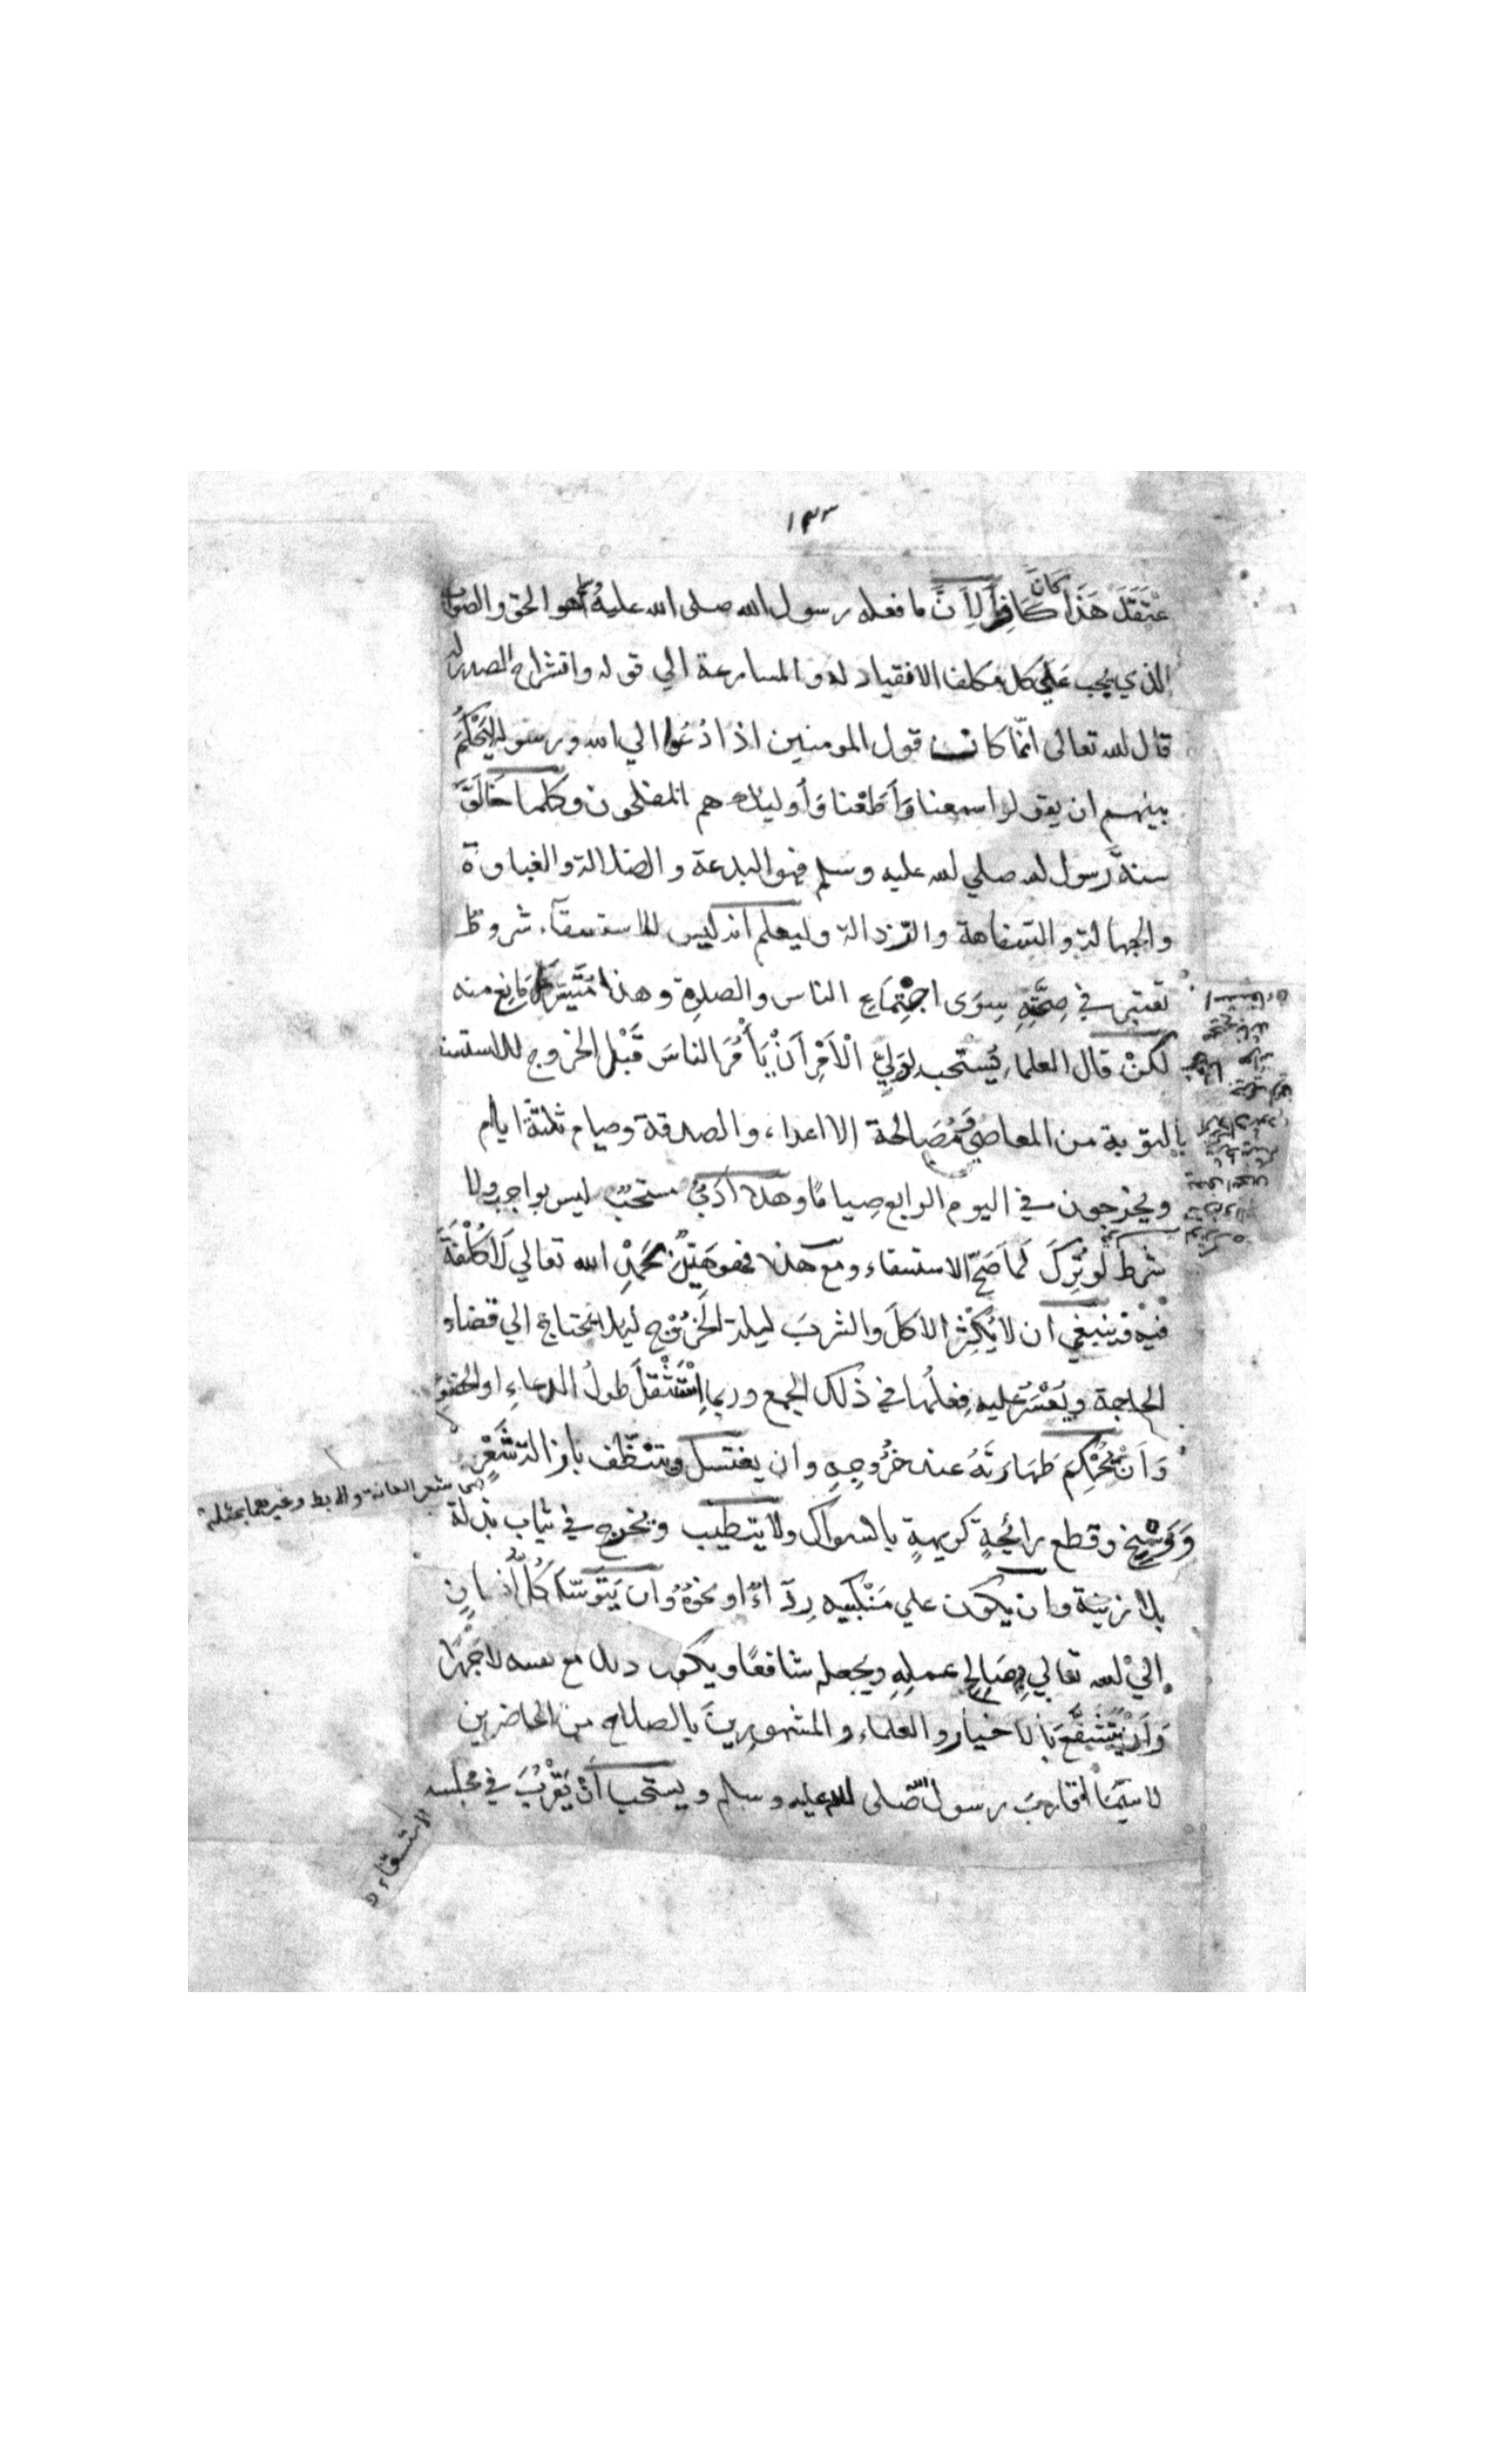 ١٣٣
عْتَقَدَ هَذَا كَانَ كَافِرًا لِأَنَّ ما فعله رسول الله صلى الله عليه وسلم هو الحق والصواب
الذي يجب عَلَي كل مكلف الانقياد له والمسارعة الي قوله وانشراح الصدر له
قال الله تعالى انّما كان قول المومنين اذا دُعُوا الي الله ورسوله لِيَحْكُمَ
بينهم ان يقولوا سمعنا وَأَطَعْنا وَأوليك هم المفلحون وكلما خَالَفَ
سنةَ رسول الله صلي الله عليه وسلم فهو البدعة والضلالة والغباوة
والجهالة والسفاهة والرّذالة وليعلم انه ليس للاستسقآء شروط
تعتبر في صِحَّتِهِ سِوَى اجْتِمَاعِ الناس والصلوة وهذا مُتَيَسِّر لَا مَانِع منه
لَكنْ قال العلماء يُستحب لِوَلِيِّ الْأَمْرِ أَنْ يَأْمُرَ الناسَ قَبْلَ الخروج للاستسقاء
بالتوبة من المعاصي وَمُصَالحة الاعداء والصدقة وصيام ثلثة ايام
ويخرجون في اليوم الرابع صِيامًا وهذا أدَبٌ مستحبٌ ليس بواجب ولا
شرط لَو تُرِكَ لَمَا صَحّ الاستسقاء ومع هذا فهو هَيِّنٌ بحَمْدِ الله تعالي لَا كُلْفَةَ
فيه فينبغي ان لا يُكْثِرَ الاكلَ والشربَ ليلة الخُرُوْجِ ليلا يحتاج الي قضاء
الحاجة ويَعْسُرَ عليه فِعلُها في ذلك الجمع وربما اسْتَثْقَلَ طولُ الدعاءِ او الخشوع
وَأَنْ يُحْكِمَ طَهَارَتَهُ عند خُرُوجِهِ وان يغتسل ويتنظّف بازالة شَعْرٍ
اي شعر العانة والابط وغيرهما
وَوَسَخٍ وقطع رائحةٍ كريهةٍ بالسواك ولا يتطيب ويخرج في ثياب بذلة
بلا زينة وان يكون علي مَنْكبيه رِدآءٌ او نحوُهُ وَان يَتَوَسّلَ كُلُّ انسانٍ
اليْ الله تعالي بِصَالِحِ عملِهِ ويجعله شافعًا ويكون ذلك مع نفسه لا جَهْرًا
وَأَنْ يُتَشَفَّعَ بِالاخيار والعلماء والمشهورينَ بالصلاح من الحاضرين
لا سيّما أقاربَ رسول الله صلى الله عليه وسلم ويستحب أن يَقْرُبَ في مجلسه
الاستسقاء